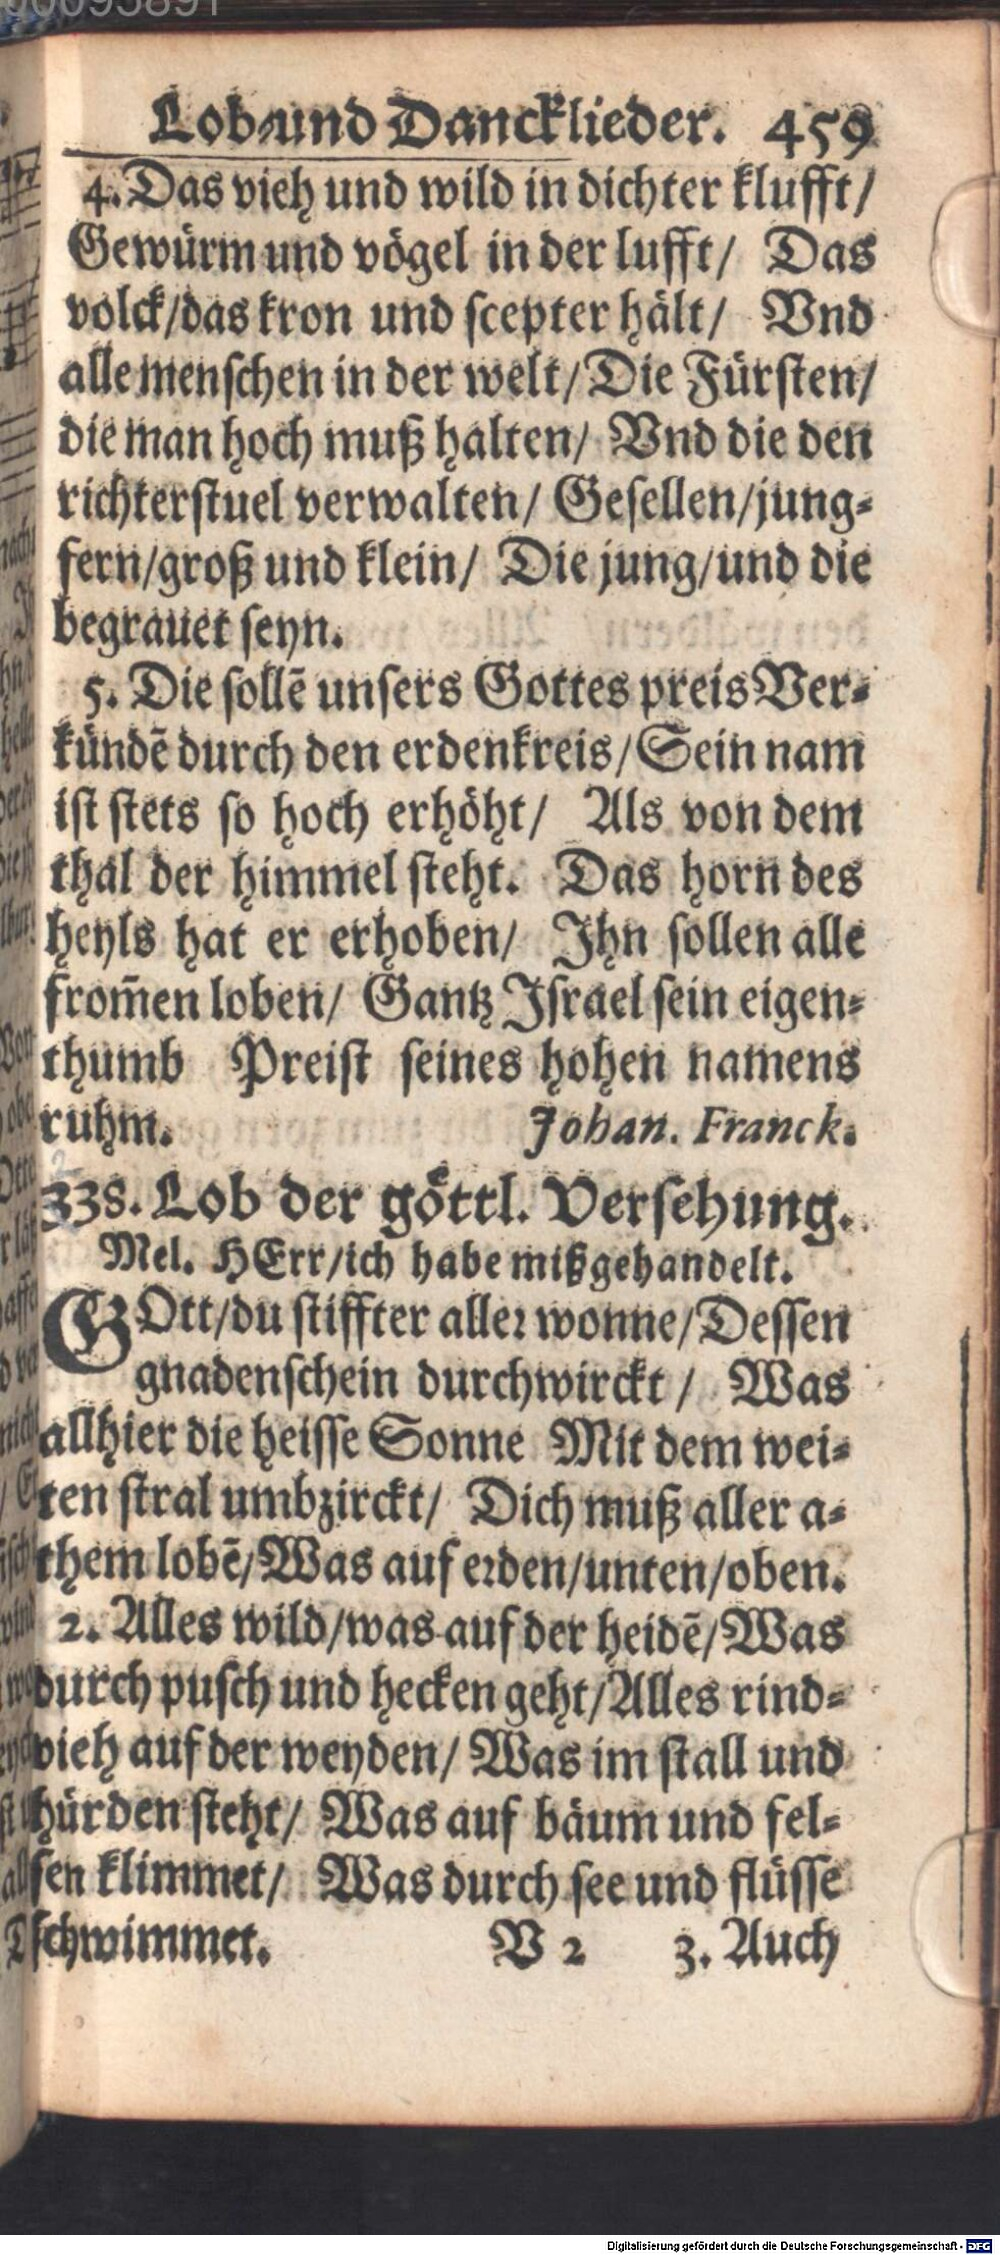 00095891
Lob-und Dancklieder. 459
4. Das vieh und wild in dichter klufft/
Gewürm und vögel in der lufft/ Das
volck/das kron und scepter hält/ Vnd
alle menschen in der welt/Die Fürsten/
die man hoch muß halten/ Vnd die den
richterstuel verwalten/ Gesellen/jung-
fern/groß und klein/ Die jung/und die
begrauet seyn.
5. Die sollẽ unsers Gottes preis Ver-
kündẽ durch den erdenkreis/Sein nam
ist stets so hoch erhöht/ Als von dem
thal der himmel steht. Das horn des
heyls hat er erhoben/ Ihn sollen alle
from̃en loben/ Gantz Israel sein eigen-
thumb Preist seines hohen namens
ruhm. Johan. Franck.
338. Lob der göttl. Versehung.
Mel. HErr/ich habe mißgehandelt.
GOtt/du stiffter aller wonne/Dessen
gnadenschein durchwirckt/ Was
allhier die heisse Sonne Mit dem wei-
ten stral umbzirckt/ Dich muß aller a-
them lobẽ/Was auf erden/unten/oben.
2. Alles wild/was auf der heidẽ/Was
durch pusch und hecken geht/Alles rind-
vieh auf der weyden/ Was im stall und
hürden steht/ Was auf bäum und fel-
sen klimmet/ Was durch see und flüsse
schwimmet. V 2 3. Auch
Digitalisierung gefördert durch die Deutsche Forschungsgemeinschaft - DFG